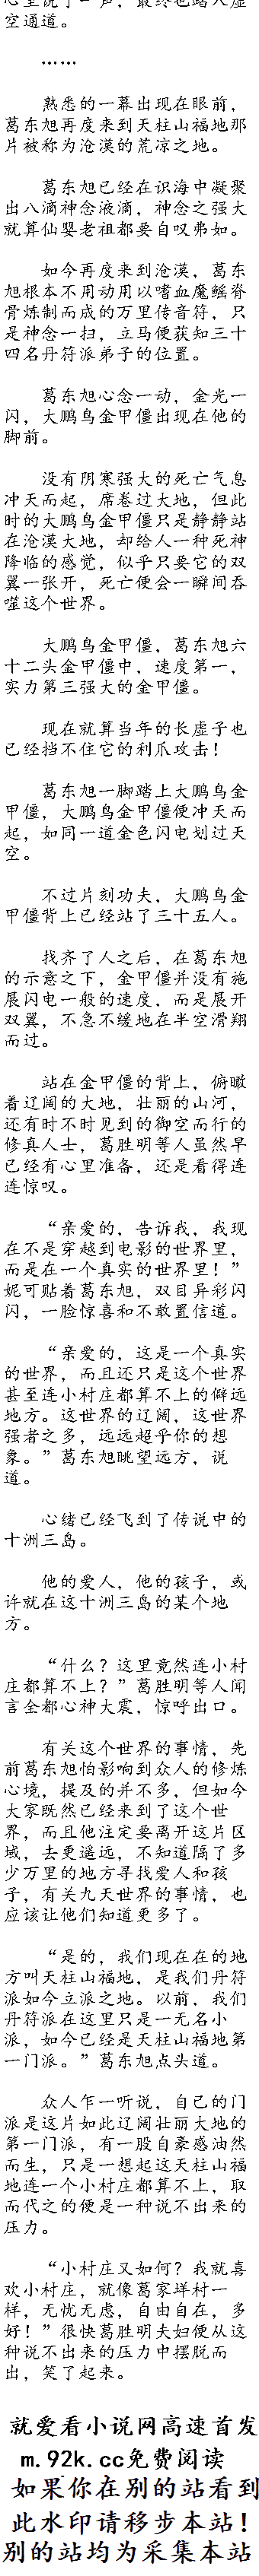 心里说了一声，最终也踏入虚
空通道。
……
熟悉的一幕出现在眼前，
葛东旭再度来到天柱山福地那
片被称为沧漠的荒凉之地。
葛东旭已经在识海中凝聚
出八滴神念液滴，神念之强大
就算仙婴老祖都要自叹弗如。
如今再度来到沧漠，葛东
旭根本不用动用以嗜血魔鳐脊
骨炼制而成的万里传音符，只
是神念一扫，立马便获知三十
四名丹符派弟子的位置。
葛东旭心念一动，金光一
闪，大鹏鸟金甲僵出现在他的
脚前。
没有阴寒强大的死亡气息
冲天而起，席卷过大地，但此
时的大鹏鸟金甲僵只是静静站
在沧漠大地，却给人一种死神
降临的感觉，似乎只要它的双
翼一张开，死亡便会一瞬间吞
噬这个世界。
大鹏鸟金甲僵，葛东旭六
十二头金甲僵中，速度第一，
实力第三强大的金甲僵。
现在就算当年的长虚子也
已经挡不住它的利爪攻击！
葛东旭一脚踏上大鹏鸟金
甲僵，大鹏鸟金甲僵便冲天而
起，如同一道金色闪电划过天
空。
不过片刻功夫，大鹏鸟金
甲僵背上已经站了三十五人。
找齐了人之后，在葛东旭
的示意之下，金甲僵并没有施
展闪电一般的速度，而是展开
双翼，不急不缓地在半空滑翔
而过。
站在金甲僵的背上，俯瞰
着辽阔的大地，壮丽的山河，
还有时不时见到的御空而行的
修真人士，葛胜明等人虽然早
已经有心里准备，还是看得连
连惊叹。
“亲爱的，告诉我，我现
在不是穿越到电影的世界里，
而是在一个真实的世界里！”
妮可贴着葛东旭，双目异彩闪
闪，一脸惊喜和不敢置信道。
“亲爱的，这是一个真实
的世界，而且还只是这个世界
甚至连小村庄都算不上的僻远
地方。这世界的辽阔，这世界
强者之多，远远超乎你的想
象。”葛东旭眺望远方，说
道。
心绪已经飞到了传说中的
十洲三岛。
他的爱人，他的孩子，或
许就在这十洲三岛的某个地
方。
“什么？这里竟然连小村
庄都算不上？”葛胜明等人闻
言全都心神大震，惊呼出口。
有关这个世界的事情，先
前葛东旭怕影响到众人的修炼
心境，提及的并不多，但如今
大家既然已经来到了这个世
界，而且他注定要离开这片区
域，去更遥远，不知道隔了多
少万里的地方寻找爱人和孩
子，有关九天世界的事情，也
应该让他们知道更多了。
“是的，我们现在在的地
方叫天柱山福地，是我们丹符
派如今立派之地。以前，我们
丹符派在这里只是一无名小
派，如今已经是天柱山福地第
一门派。”葛东旭点头道。
众人乍一听说，自己的门
派是这片如此辽阔壮丽大地的
第一门派，有一股自豪感油然
而生，只是一想起这天柱山福
地连一个小村庄都算不上，取
而代之的便是一种说不出来的
压力。
“小村庄又如何？我就喜
欢小村庄，就像葛家垟村一
样，无忧无虑，自由自在，多
好！”很快葛胜明夫妇便从这
种说不出来的压力中摆脱而
出，笑了起来。
就爱看小说网高速首发
m.92k.cc免费阅读
如果你在别的站看到
此水印请移步本站！
别的站均为采集本站